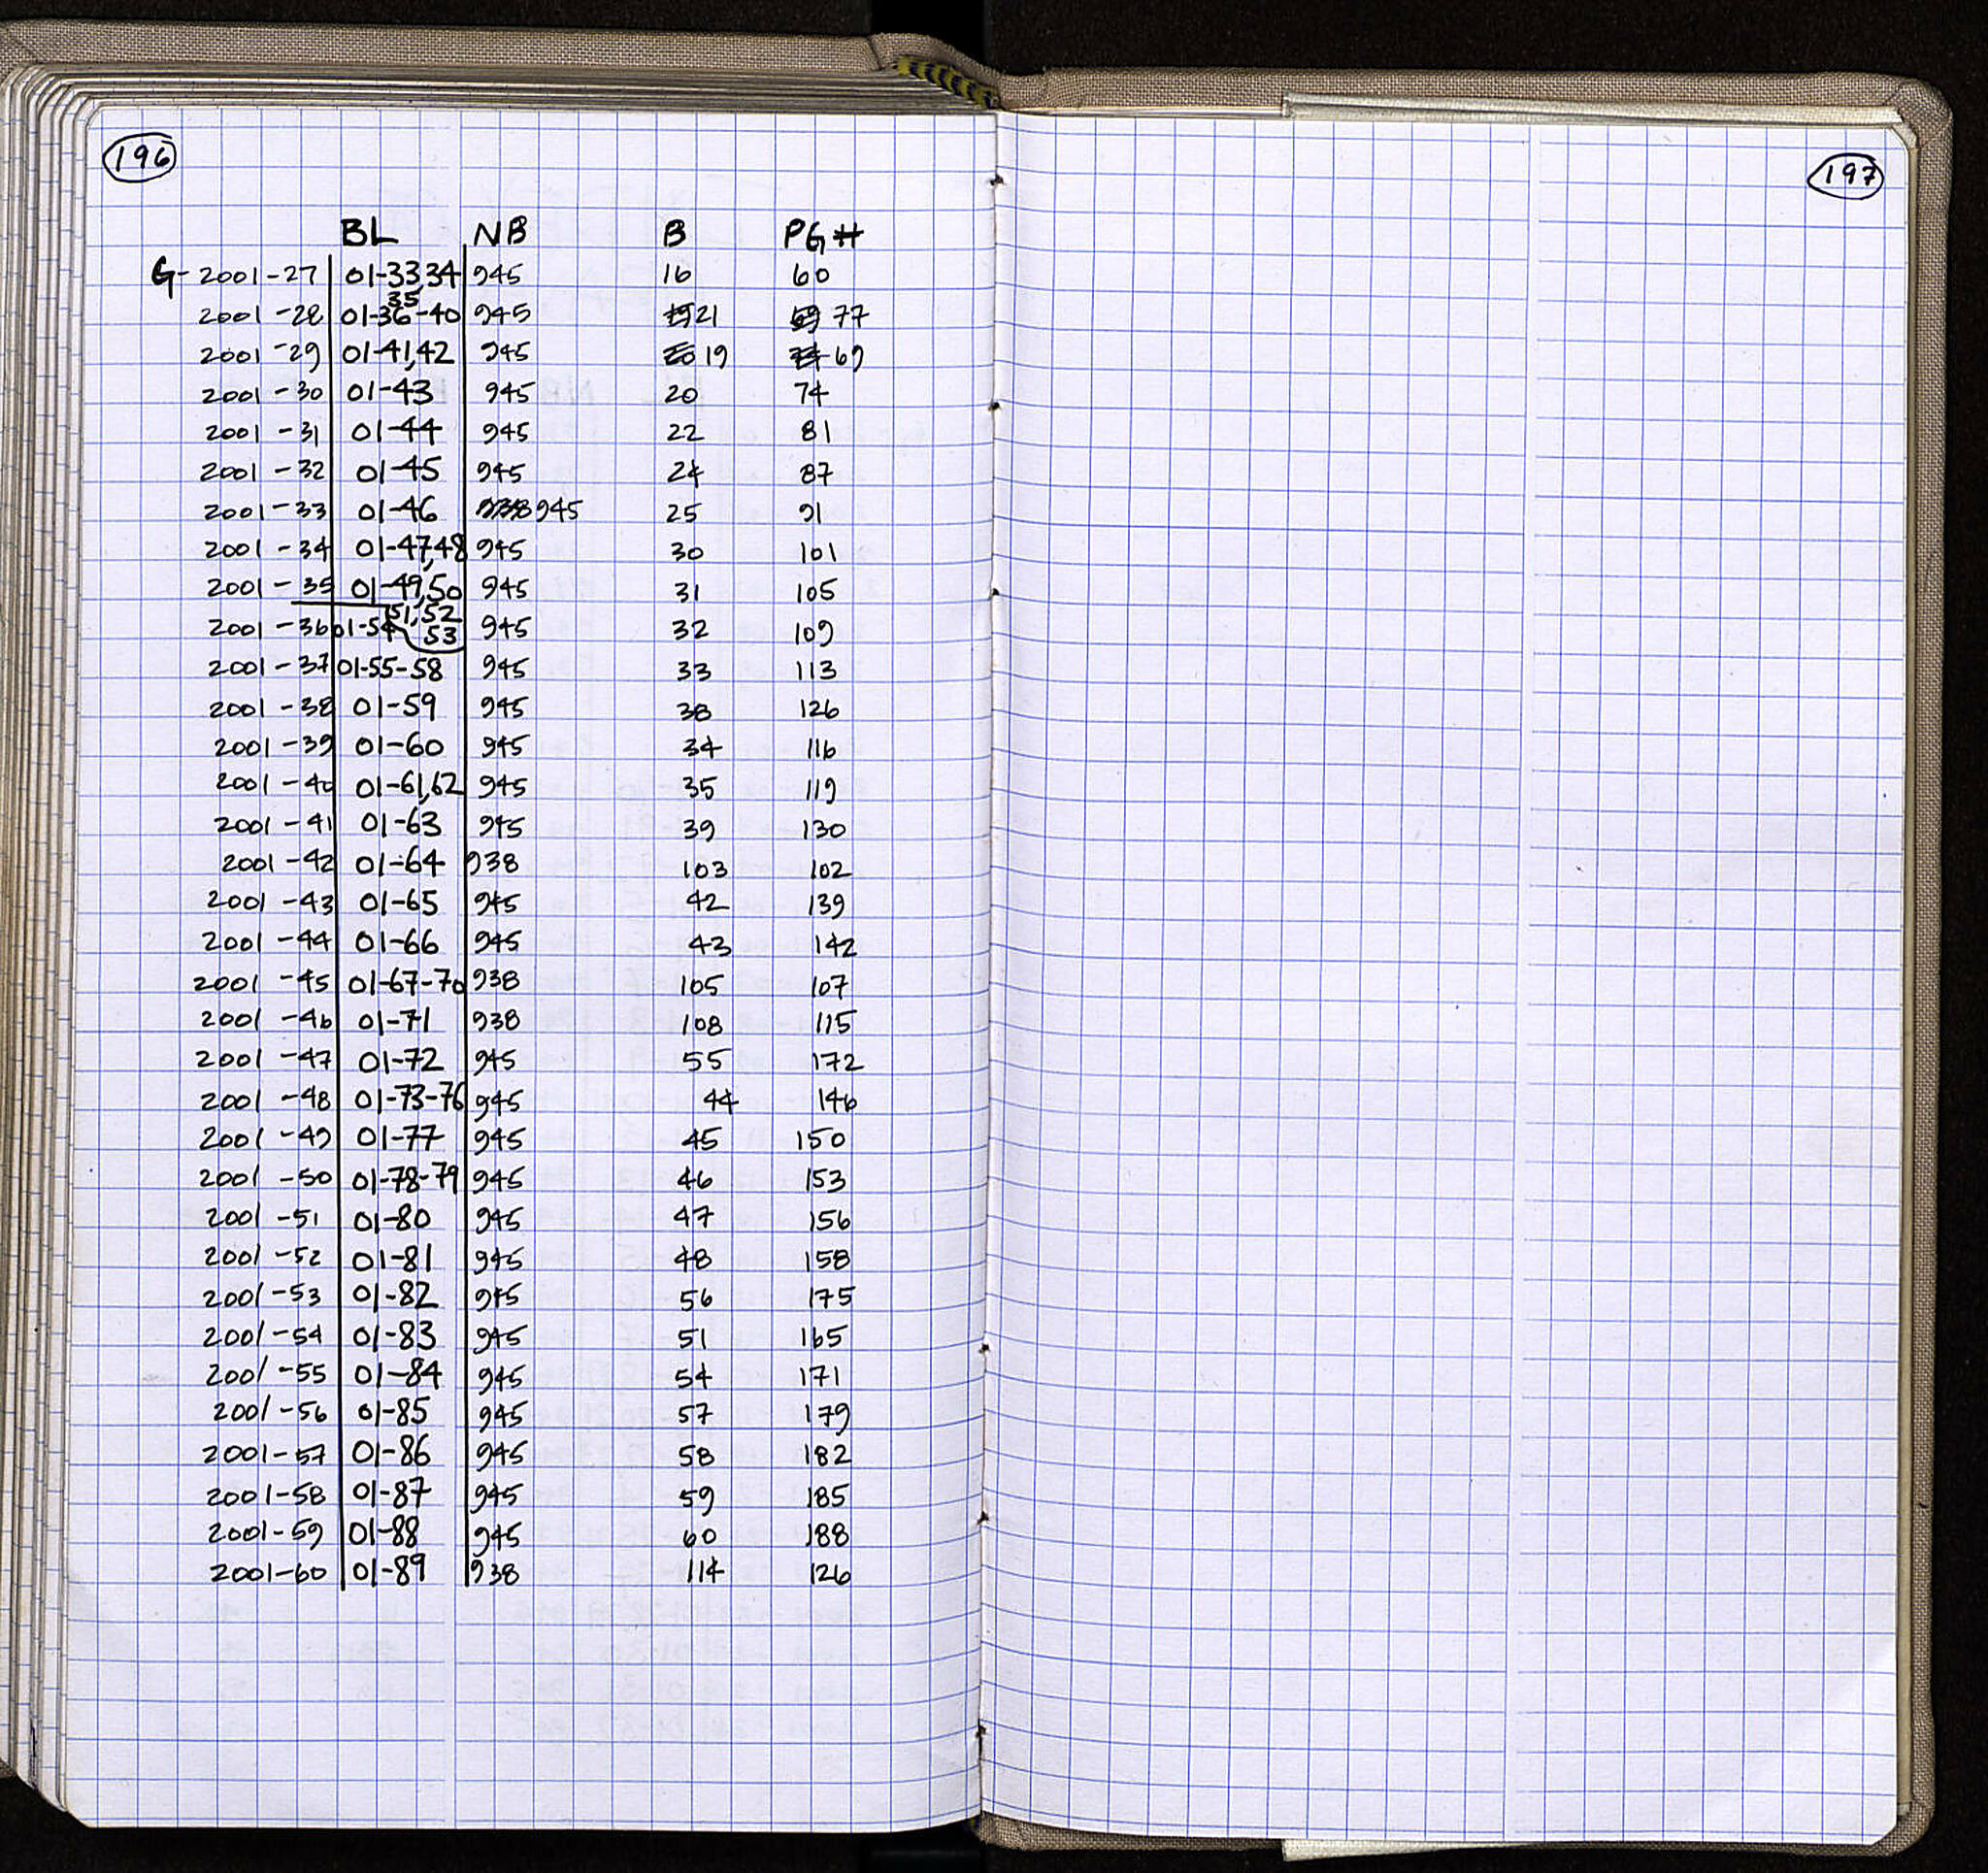 196
197
BL NB B PG#
G-2001-27 01-33,34 945 16 60
35
2001-28 01-36-40 945 21 77
2001-29 01-41,42 945 19 69
2001-30 01-43 945 20 74
2001-31 01-44 945 22 81
2001-32 01-45 945 24 87
2001-33 01-46 938 945 25 91
2001-34 01-47,48 945 30 101
2001-35 01-49,50 945 31 105
51,52
53
2001-36 01-54 945 32 109
2001-37 01-55-58 945 33 113
2001-38 01-59 945 38 126
2001-39 01-60 945 34 116
2001-40 01-61,62 945 35 119
2001-41 01-63 945 39 130
2001-42 01-64 938 103 102
2001-43 01-65 945 42 139
2001-44 01-66 945 43 142
2001-45 01-67-70 938 105 107
2001-46 01-71 938 108 115
2001-47 01-72 945 55 172
2001-48 01-73-76 945 44 146
2001-49 01-77 945 45 150
2001-50 01-78-79 945 46 153
2001-51 01-80 945 47 156
2001-52 01-81 945 48 158
2001-53 01-82 945 56 175
2001-54 01-83 945 51 165
2001-55 01-84 945 54 171
2001-56 01-85 945 57 179
2001-57 01-86 945 58 182
2001-58 01-87 945 59 185
2001-59 01-88 945 60 188
2001-60 01-89 938 114 126